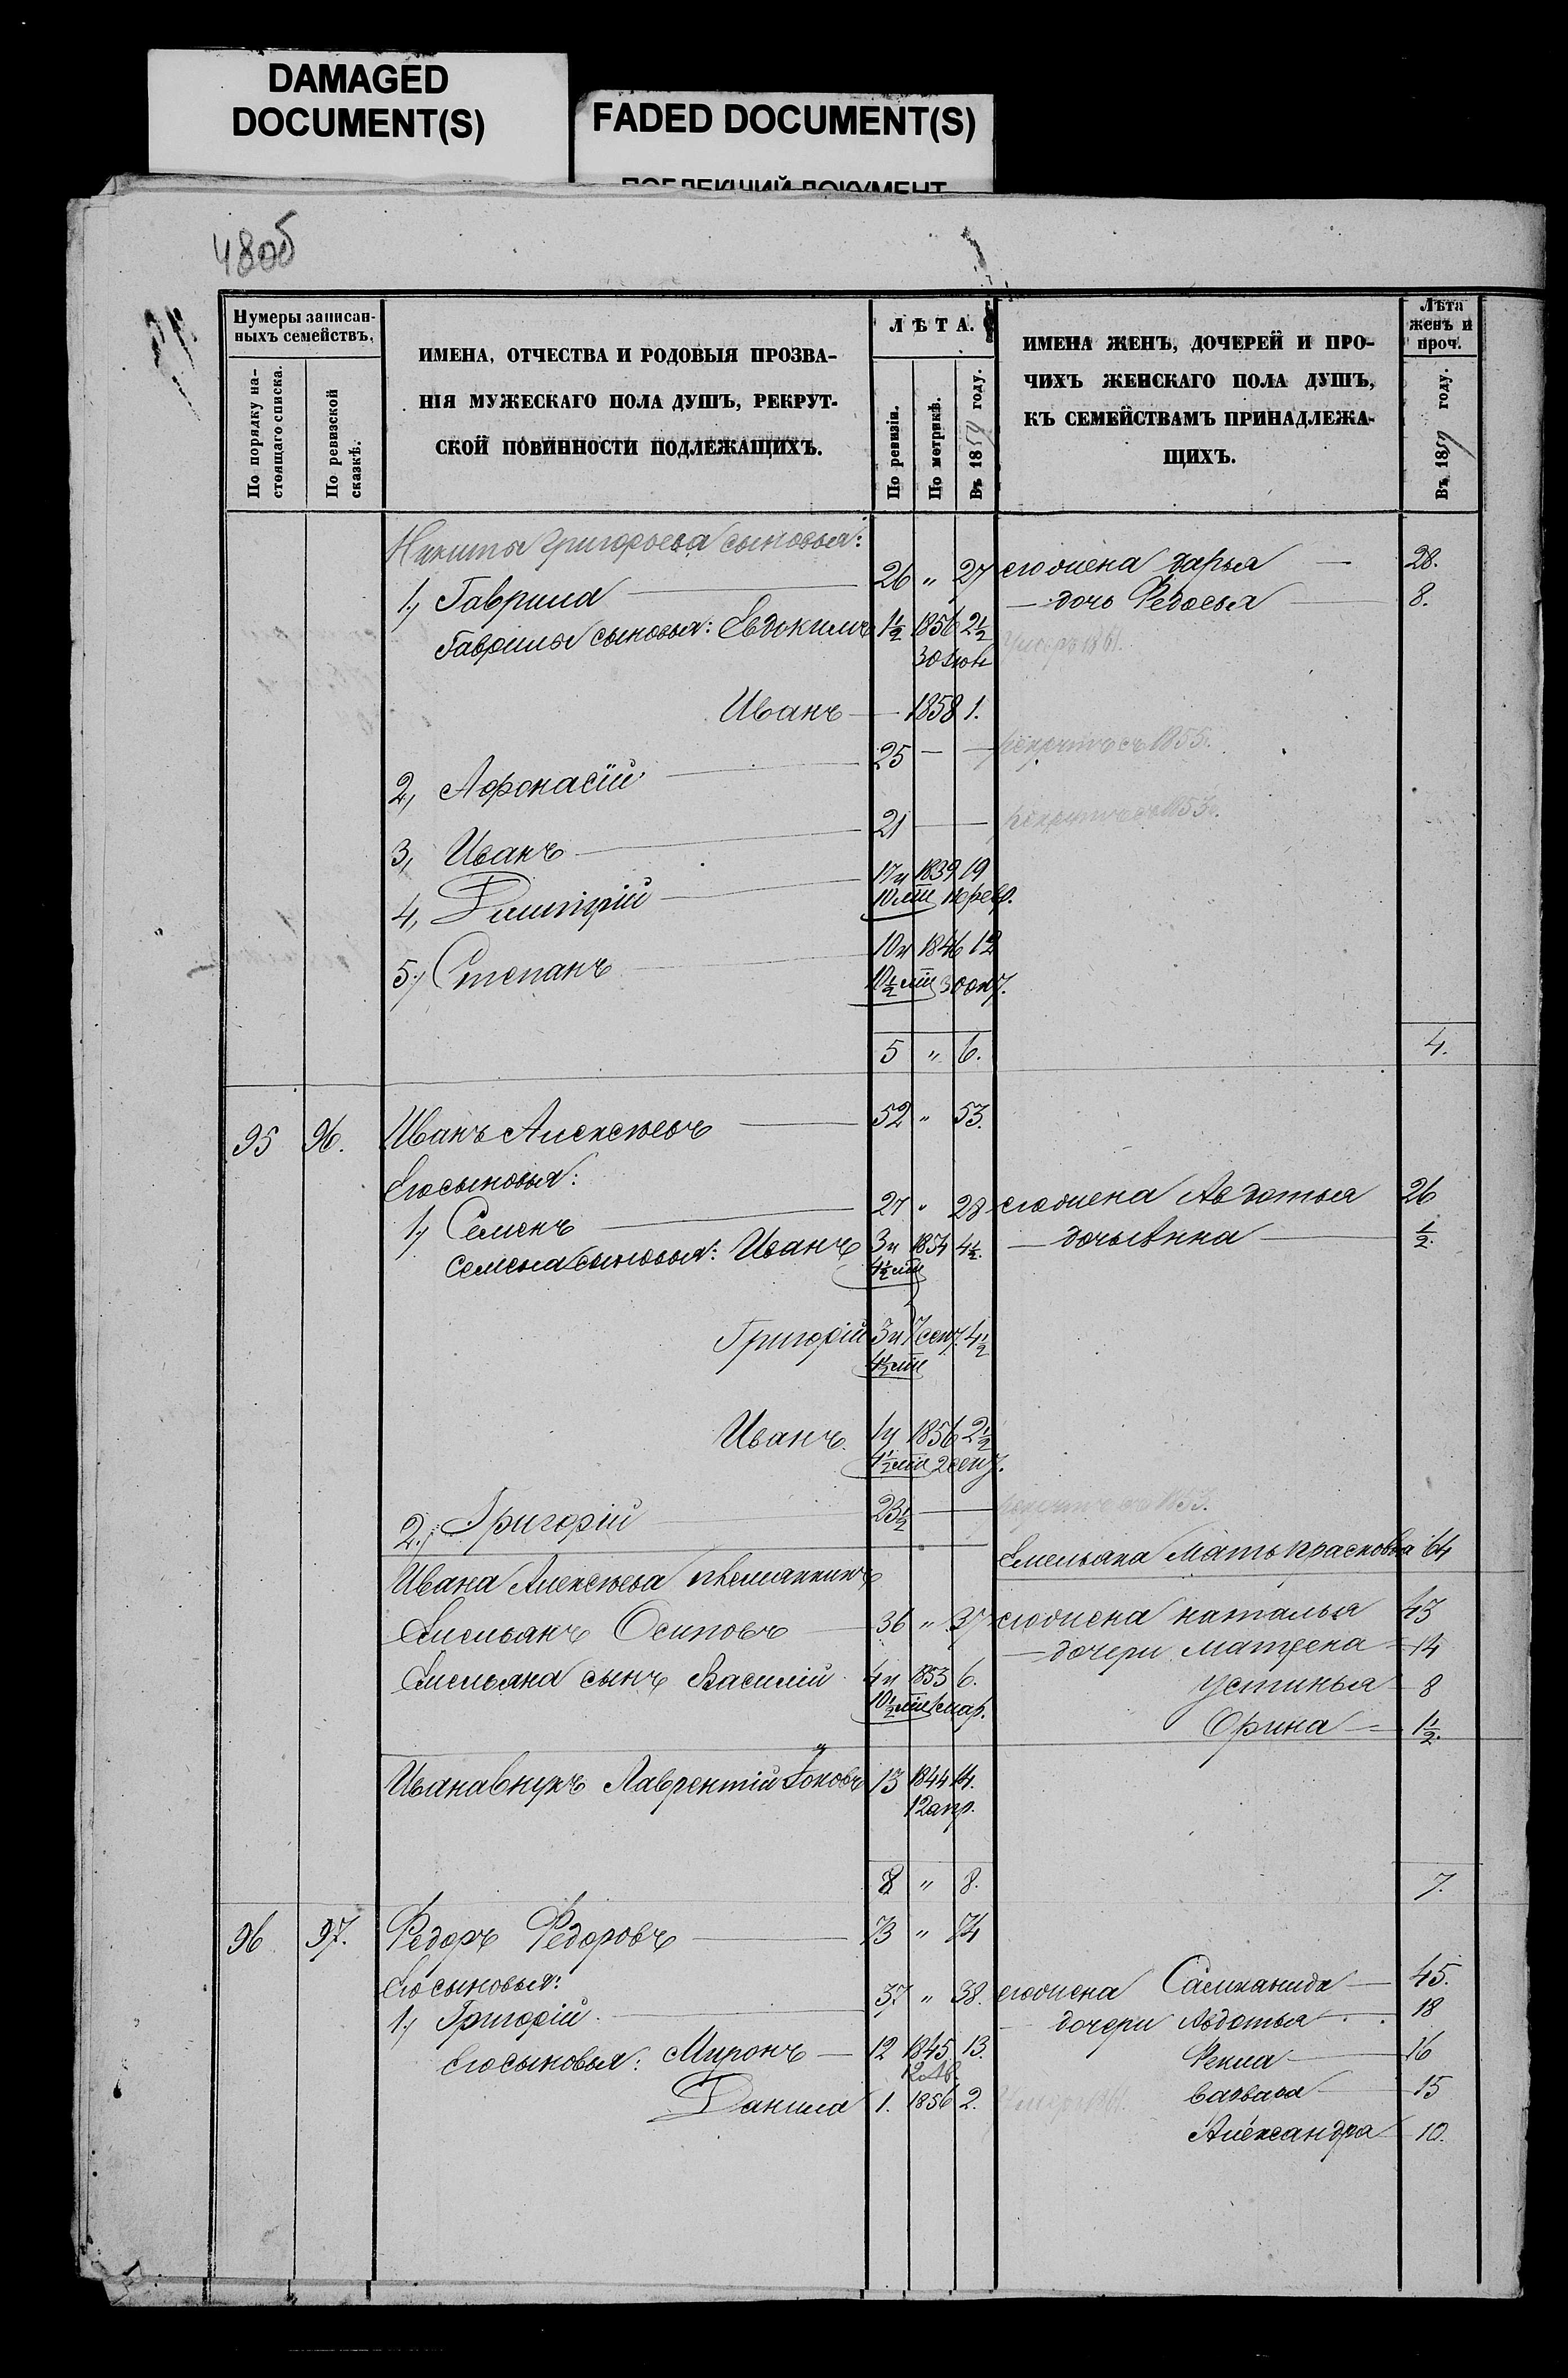 DAMAGED
DOCUMENT(S)
FADED DOCUMENT(S)
ПОБЛЕКШИЙ ДОКУМЕНТ
48об
Нумеры записан-
ныхъ семействъ.
По порядку на-
стоящаго списка.
По ревизской
сказкѣ.
ИМЕНА, ОТЧЕСТВА И РОДОВЫЯ ПРОЗВА-
НІЯ МУЖЕСКАГО ПОЛА ДУШЪ, РЕКРУТ-
СКОЙ ПОВИННОСТИ ПОДЛЕЖАЩИХЪ.
ЛѢТА.
По ревизіи.
По метрикѣ.
Въ 1859 году.
ИМЕНА ЖЕНЪ, ДОЧЕРЕЙ И ПРО-
ЧИХЪ ЖЕНСКАГО ПОЛА ДУШЪ,
КЪ СЕМЕЙСТВАМЪ ПРИНАДЛЕЖА-
ЩИХЪ.
Лѣта
женъ и
проч.
Въ 1859 году.
Никиты Григорьева сыновья:
1, Гаврила 26 " 27 его жена Дарья 28.
дочь Федосья 8.
Гаврилы сыновья: Евдокимъ 1½ 1856 2½ Умеръ 1861.
30 Іюн
Иванъ 1858 1.
2, Афонасій 25 — — рекрутъ съ 1855.
3, Иванъ 21 рекрутъ съ 1853.
4, Димитрій 17 и 1839 19
10 м
5, Степанъ 10 и 1846 12
10½ м 30 окт.
5 " 6. 4.
95 96. Иванъ Алексѣевъ 52 " 53.
Его сыновья:
1, Семенъ 27 " 28 его жена Авдотья 26
Семена сыновья: Иванъ 3 и 1854 4½. дочь Анна ½.
4½ м
Григорій 3 и 7 сент. 4½
4½ м
Иванъ 1 и 1856 2½
4½ м 2 сент.
2, Григорій 23½ рекрутъ съ 1853.
Емельяна мать Прасковья 64
Ивана Алексѣева племянникъ
Емельянъ Осиповъ 36 " 37 его жена Наталья 43
дочери Матрена 14
Емельяна сынъ Василій 4 и 1853 6. Устинья 8
10½ м мар.
Орина 1½.
Ивана внукъ Лаврентій 13 1844 14.
12 апр.
8 " 8. 7.
96 97. Федоръ Федоровъ 73 " 74
Его сыновья:
1, Григорій 37 " 38. его жена Саломанида 45.
дочери Авдотья 18
Его сыновья: Миронъ 12 1845 13. Фекла 16
12 Ав.
Данила 1. 1856 2. Умеръ 1861. Варвара 15
Александра 10.